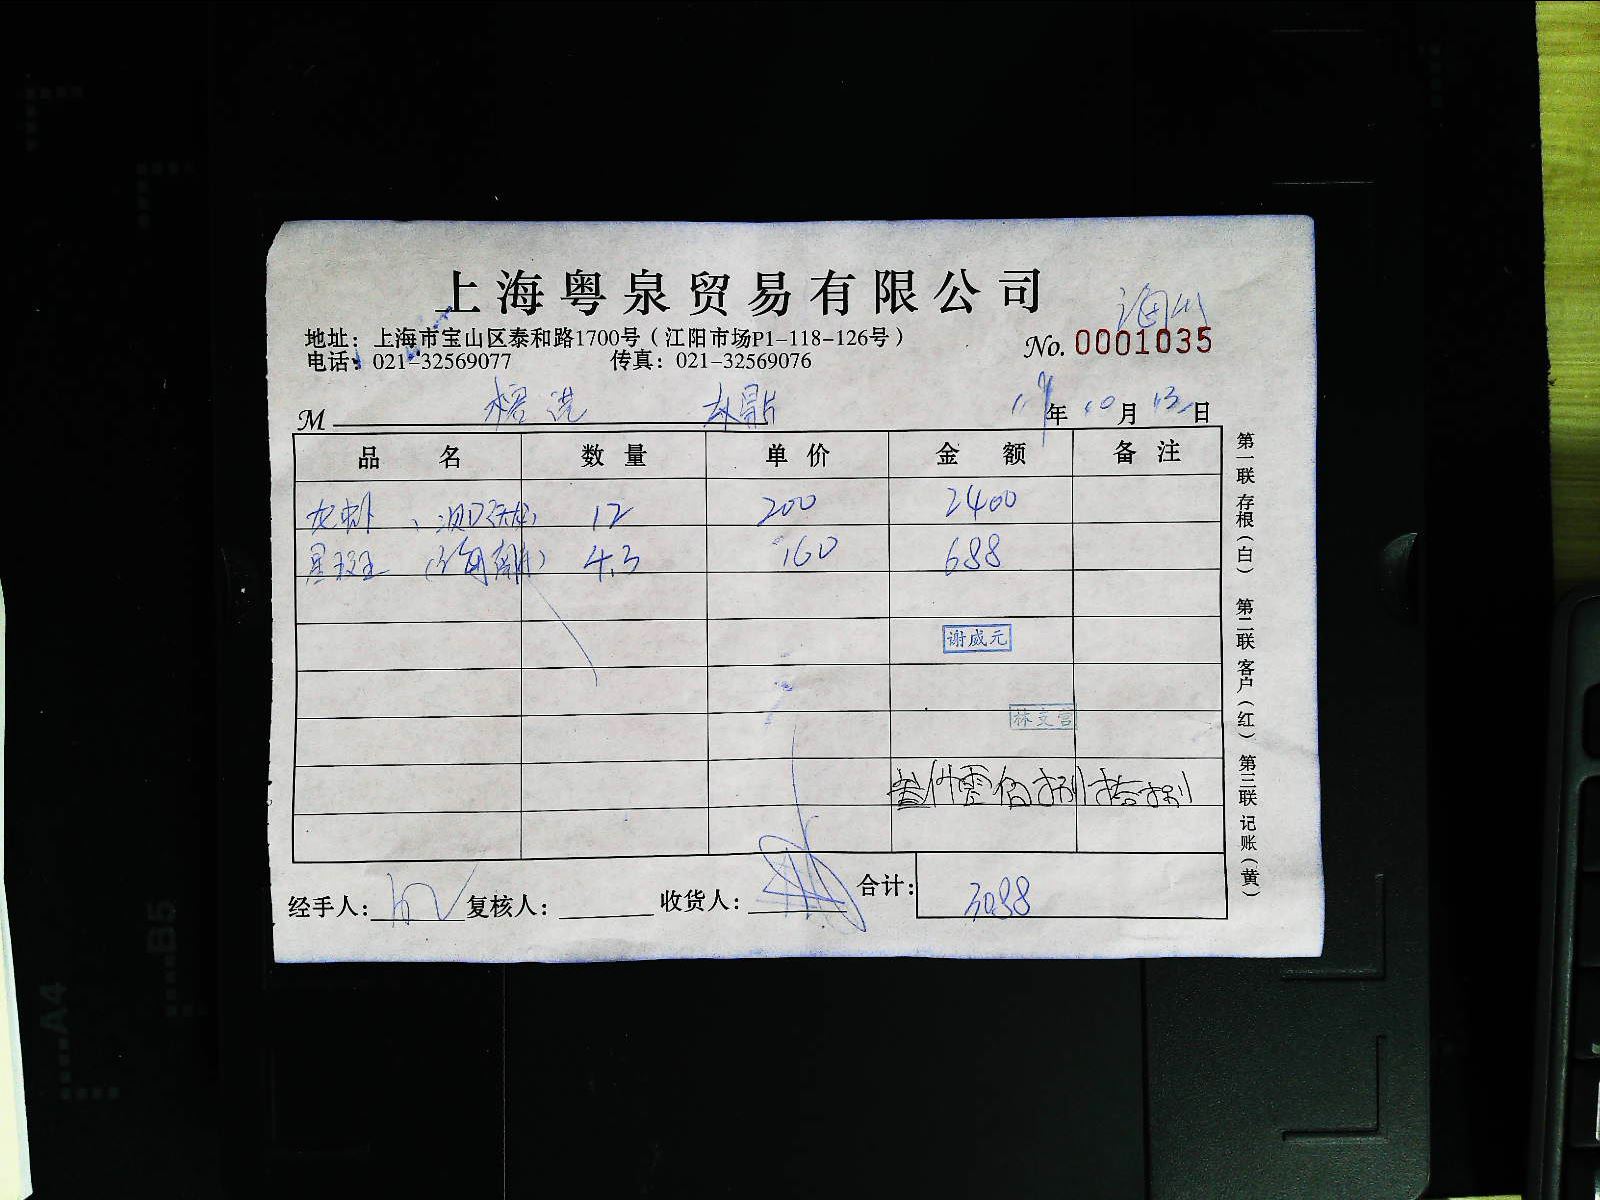 上海粤泉贸易有限公司
地址：上海市宝山区泰和路1700号（江阳市场P1-118-126号）
No. 0001035
电话：021-32569077 传真：021-32569076
M 年10月13日
品名 数量 单价 金额 备注
龙虾 12 200 2400
星斑 4.3 160 688
谢威元
林文营
叁仟零佰捌拾捌
经手人： 复核人： 收货人： 合计：3088
第一联 存根（白） 第二联 客户（红） 第三联 记账（黄）
A4
B5